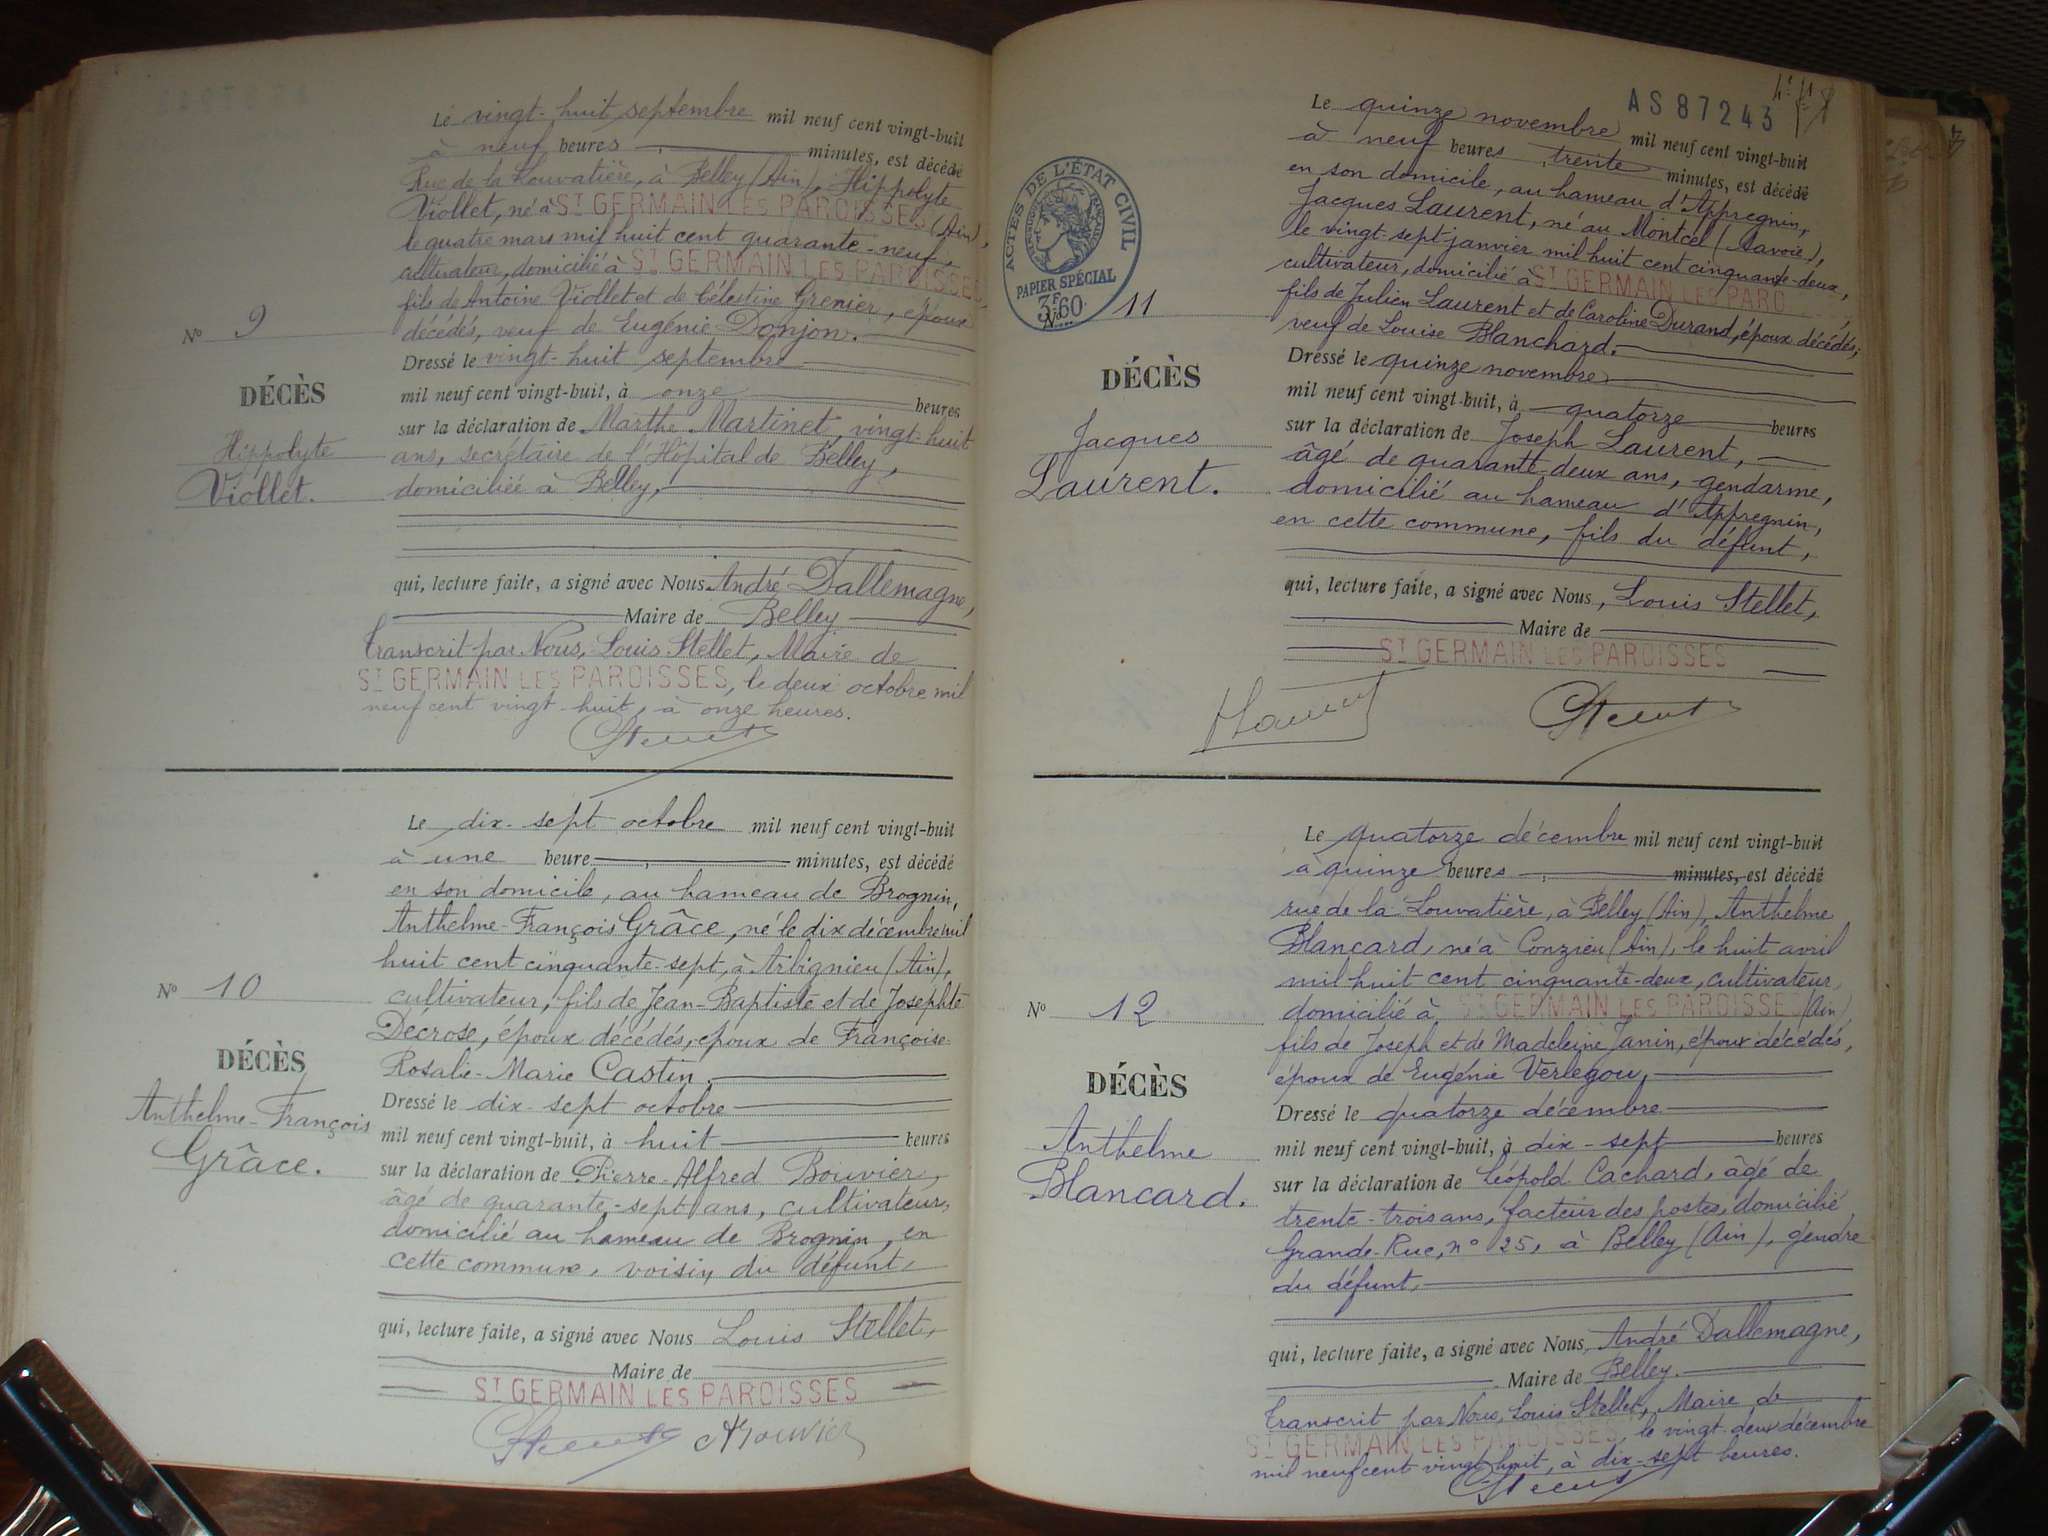 Le vingt-huit septembre mil neuf cent vingt-huit
à neuf heures minutes, est décédé
Rue de la Louvatière, à Belley (Ain), Hippolyte
Viollet, né à ST GERMAIN LES PAROISSES (Ain),
le quatre mars mil huit cent quarante-neuf,
cultivateur, domicilié à ST GERMAIN LES PAROISSES,
fils de Antoine Viollet et de Célestine Grenier, époux
décédés, veuf de Eugénie Donjon.
Dressé le vingt-huit septembre
mil neuf cent vingt-huit, à onze heures
sur la déclaration de Marthe Martinet, vingt-huit
ans, secrétaire de l'Hôpital de Belley,
domiciliée à Belley,
qui, lecture faite, a signé avec Nous André Dallemagne,
Maire de Belley
Transcrit par Nous, Louis Stellet, Maire de
ST GERMAIN LES PAROISSES, le deux octobre mil
neuf cent vingt-huit, à onze heures.
No 9
DÉCÈS
Hippolyte
Viollet.
Le dix-sept octobre mil neuf cent vingt-huit
à une heure minutes, est décédé
en son domicile, au hameau de Brognin,
Anthelme-François Grâce, né le dix décembre mil
huit cent cinquante-sept, à Arbignieu (Ain),
cultivateur, fils de Jean-Baptiste et de Josephte
Décrose, époux décédés, époux de Françoise-
Rosalie-Marie Castin.
Dressé le dix-sept octobre
mil neuf cent vingt-huit, à huit heures
sur la déclaration de Pierre-Alfred Bouvier,
âgé de quarante-sept ans, cultivateur,
domicilié au hameau de Brognin, en
cette commune, voisin du défunt,
qui, lecture faite, a signé avec Nous Louis Stellet,
Maire de
ST GERMAIN LES PAROISSES
ABouvier
No 10
DÉCÈS
Anthelme-François
Grâce.
AS 87243
ACTES DE L'ÉTAT CIVIL
PAPIER SPÉCIAL
3F60
Le quinze novembre mil neuf cent vingt-huit
à neuf heures trente minutes, est décédé
en son domicile, au hameau d'Appregnin,
Jacques Laurent, né au Montcel (Savoie),
le vingt-sept janvier mil huit cent cinquante-deux,
cultivateur, domicilié à ST GERMAIN LES PARO
fils de Julien Laurent et de Caroline Durand, époux décédés,
veuf de Louise Blanchard.
Dressé le quinze novembre
mil neuf cent vingt-huit, à quatorze heures
sur la déclaration de Joseph Laurent,
âgé de quarante-deux ans, gendarme,
domicilié au hameau d'Appregnin,
en cette commune, fils du défunt,
qui, lecture faite, a signé avec Nous, Louis Stellet,
Maire de
ST GERMAIN LES PAROISSES
No 11
DÉCÈS
Jacques
Laurent.
Le quatorze décembre mil neuf cent vingt-huit
à quinze heures minutes, est décédé
rue de la Louvatière, à Belley (Ain), Anthelme
Blancard, né à Conzieu (Ain), le huit avril
mil huit cent cinquante-deux, cultivateur,
domicilié à ST GERMAIN LES PAROISSES (Ain),
fils de Joseph et de Madeleine Janin, époux décédés,
époux de Eugénie Verlegou,
Dressé le quatorze décembre
mil neuf cent vingt-huit, à dix-sept heures
sur la déclaration de Léopold Cachard, âgé de
trente-trois ans, facteur des postes, domicilié
Grande-Rue, no 25, à Belley (Ain), gendre
du défunt,
qui, lecture faite, a signé avec Nous, André Dallemagne,
Maire de Belley.
Transcrit par Nous, Louis Stellet, Maire de
ST GERMAIN LES PAROISSES, le vingt-deux décembre
mil neuf cent vingt-huit, à dix-sept heures.
No 12
DÉCÈS
Anthelme
Blancard.